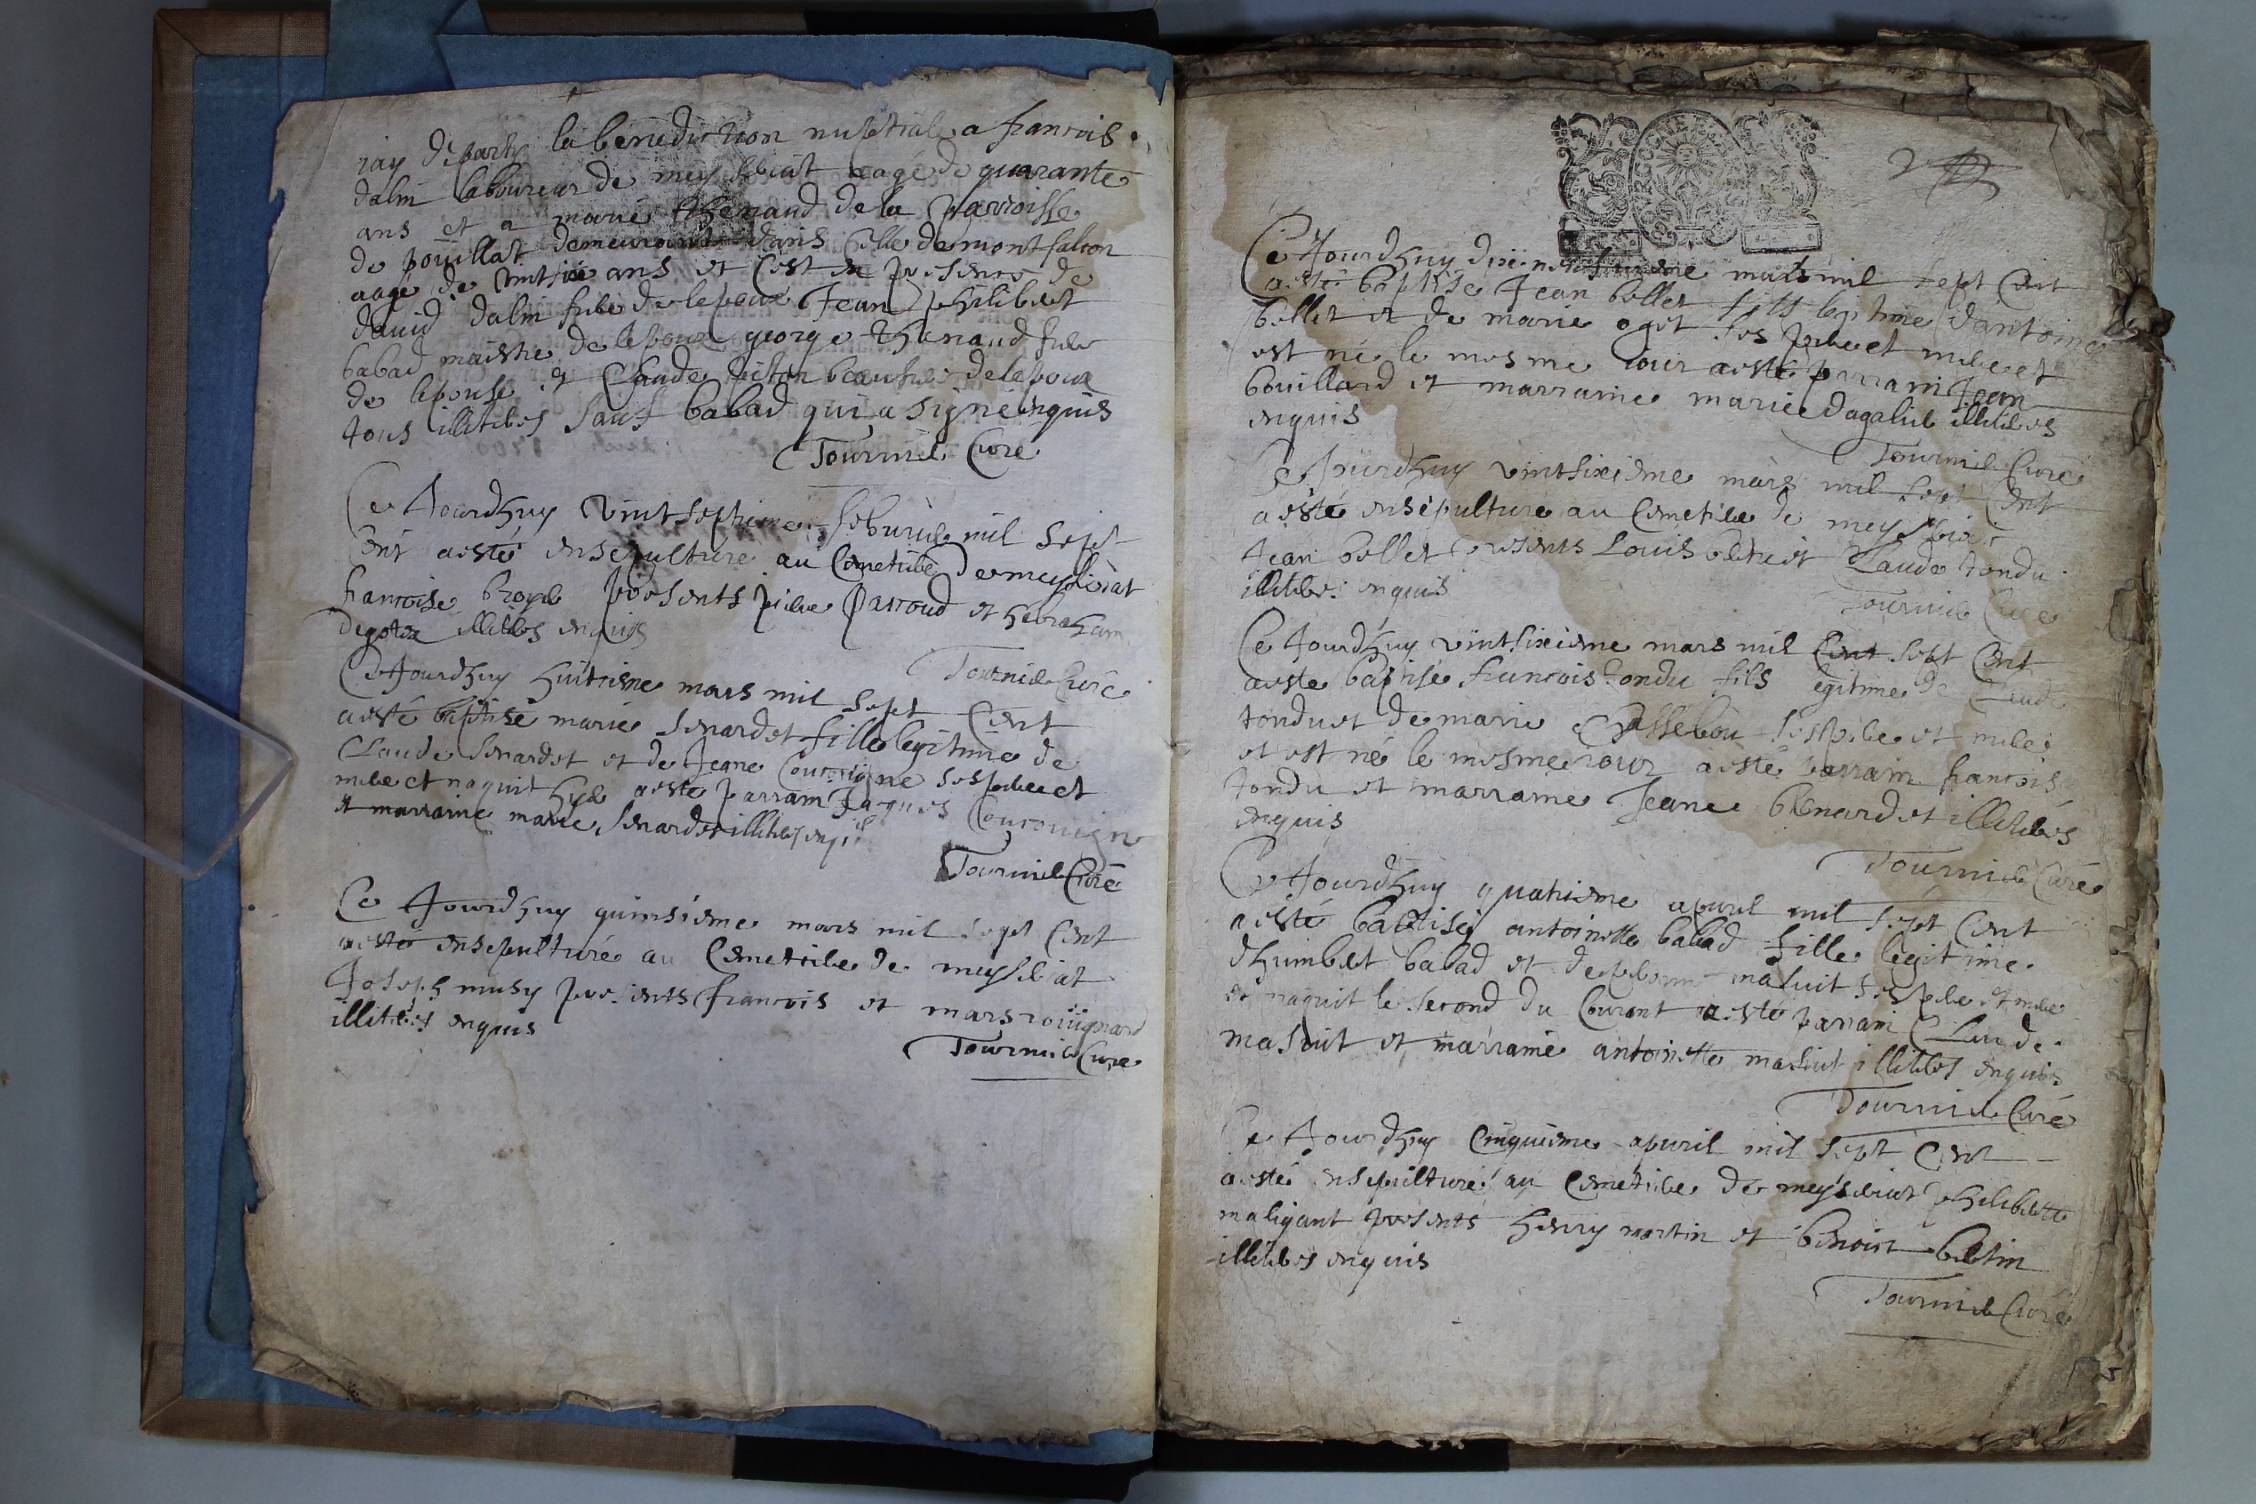 jay departy la benediction nuptiale a francois
dalin laboureur de meyseriat aagé de quarante
ans et a marie thenaud de la parroisse
de pouillat demeurante dans celle de montfalcon
aagé de vint ans et c'est en presence de
david dalin frere de lepoux Jean philibert
babad maistre de lepoux george thenaud frere
de lepouse et Claude piston beaufrere de lepoux
tous illiteres sauf babad qui a signe enquis
Tournier Curé
Ce Jourdhuy vintseptieme feburier mil sept
Cent a esté ensepulturé au Cimetiere de meyseriat
francoise broyer presents pierre parroud et hebraham
illiteres enquis
Tournier Curé
Ce Jourdhuy huitiesme mars mil sept Cent
a esté baptisé marie Renardet fille legitime de
Claude Renardet et de Jeane ses pere et
mere et naquit hyer a esté parrain Jaques
et marraine marie Renardet illiteres
Tournier Curé
Ce Jourdhuy quinsieme mars mil sept Cent
a esté ensepulturé au Cimetiere de meyseriat
Joseph musy presents francois et mars
illiteres enquis
Tournier Curé
2
Ce Jourdhuy mars mil sept Cent
a esté baptisé Jean bollet fils legitime d'antoine
bollet et de marie oget ses pere et mere et
est né le mesme iour a esté parrain Jean
bouillard et marraine marie dagalier illiteres
enquis
Tournier Curé
Ce Jourdhuy vintsixieme mars mil sept Cent
a esté ensepulturé au Cimetiere de meyseriat
Jean bollet presents Louis et Claude tondu
illiteres enquis
Tournier Curé
Ce Jourdhuy vintsixieme mars mil Cent sept Cent
a esté baptisé francois tondu fils legitime de Claude
tondu et de marie ses pere et mere
et est né le mesme iour a esté parrain francois
tondu et marraine Jeane Renardet illiteres
enquis
Tournier Curé
Ce Jourdhuy quatrieme apvril mil sept Cent
a esté baptisé antoinette babad fille legitime
d'humbert babad et de masuit ses pere et mere
et naquit le second du Courant a esté parrain Claude
masuit et marraine antoinette masuit illiteres enquis
Tournier Curé
Ce Jourdhuy Cinquieme apvril mil sept Cent
a esté ensepulturé au Cimetiere de meyseriat philiberte
maligant presents henry martin et benoist
illiteres enquis
Tournier Curé